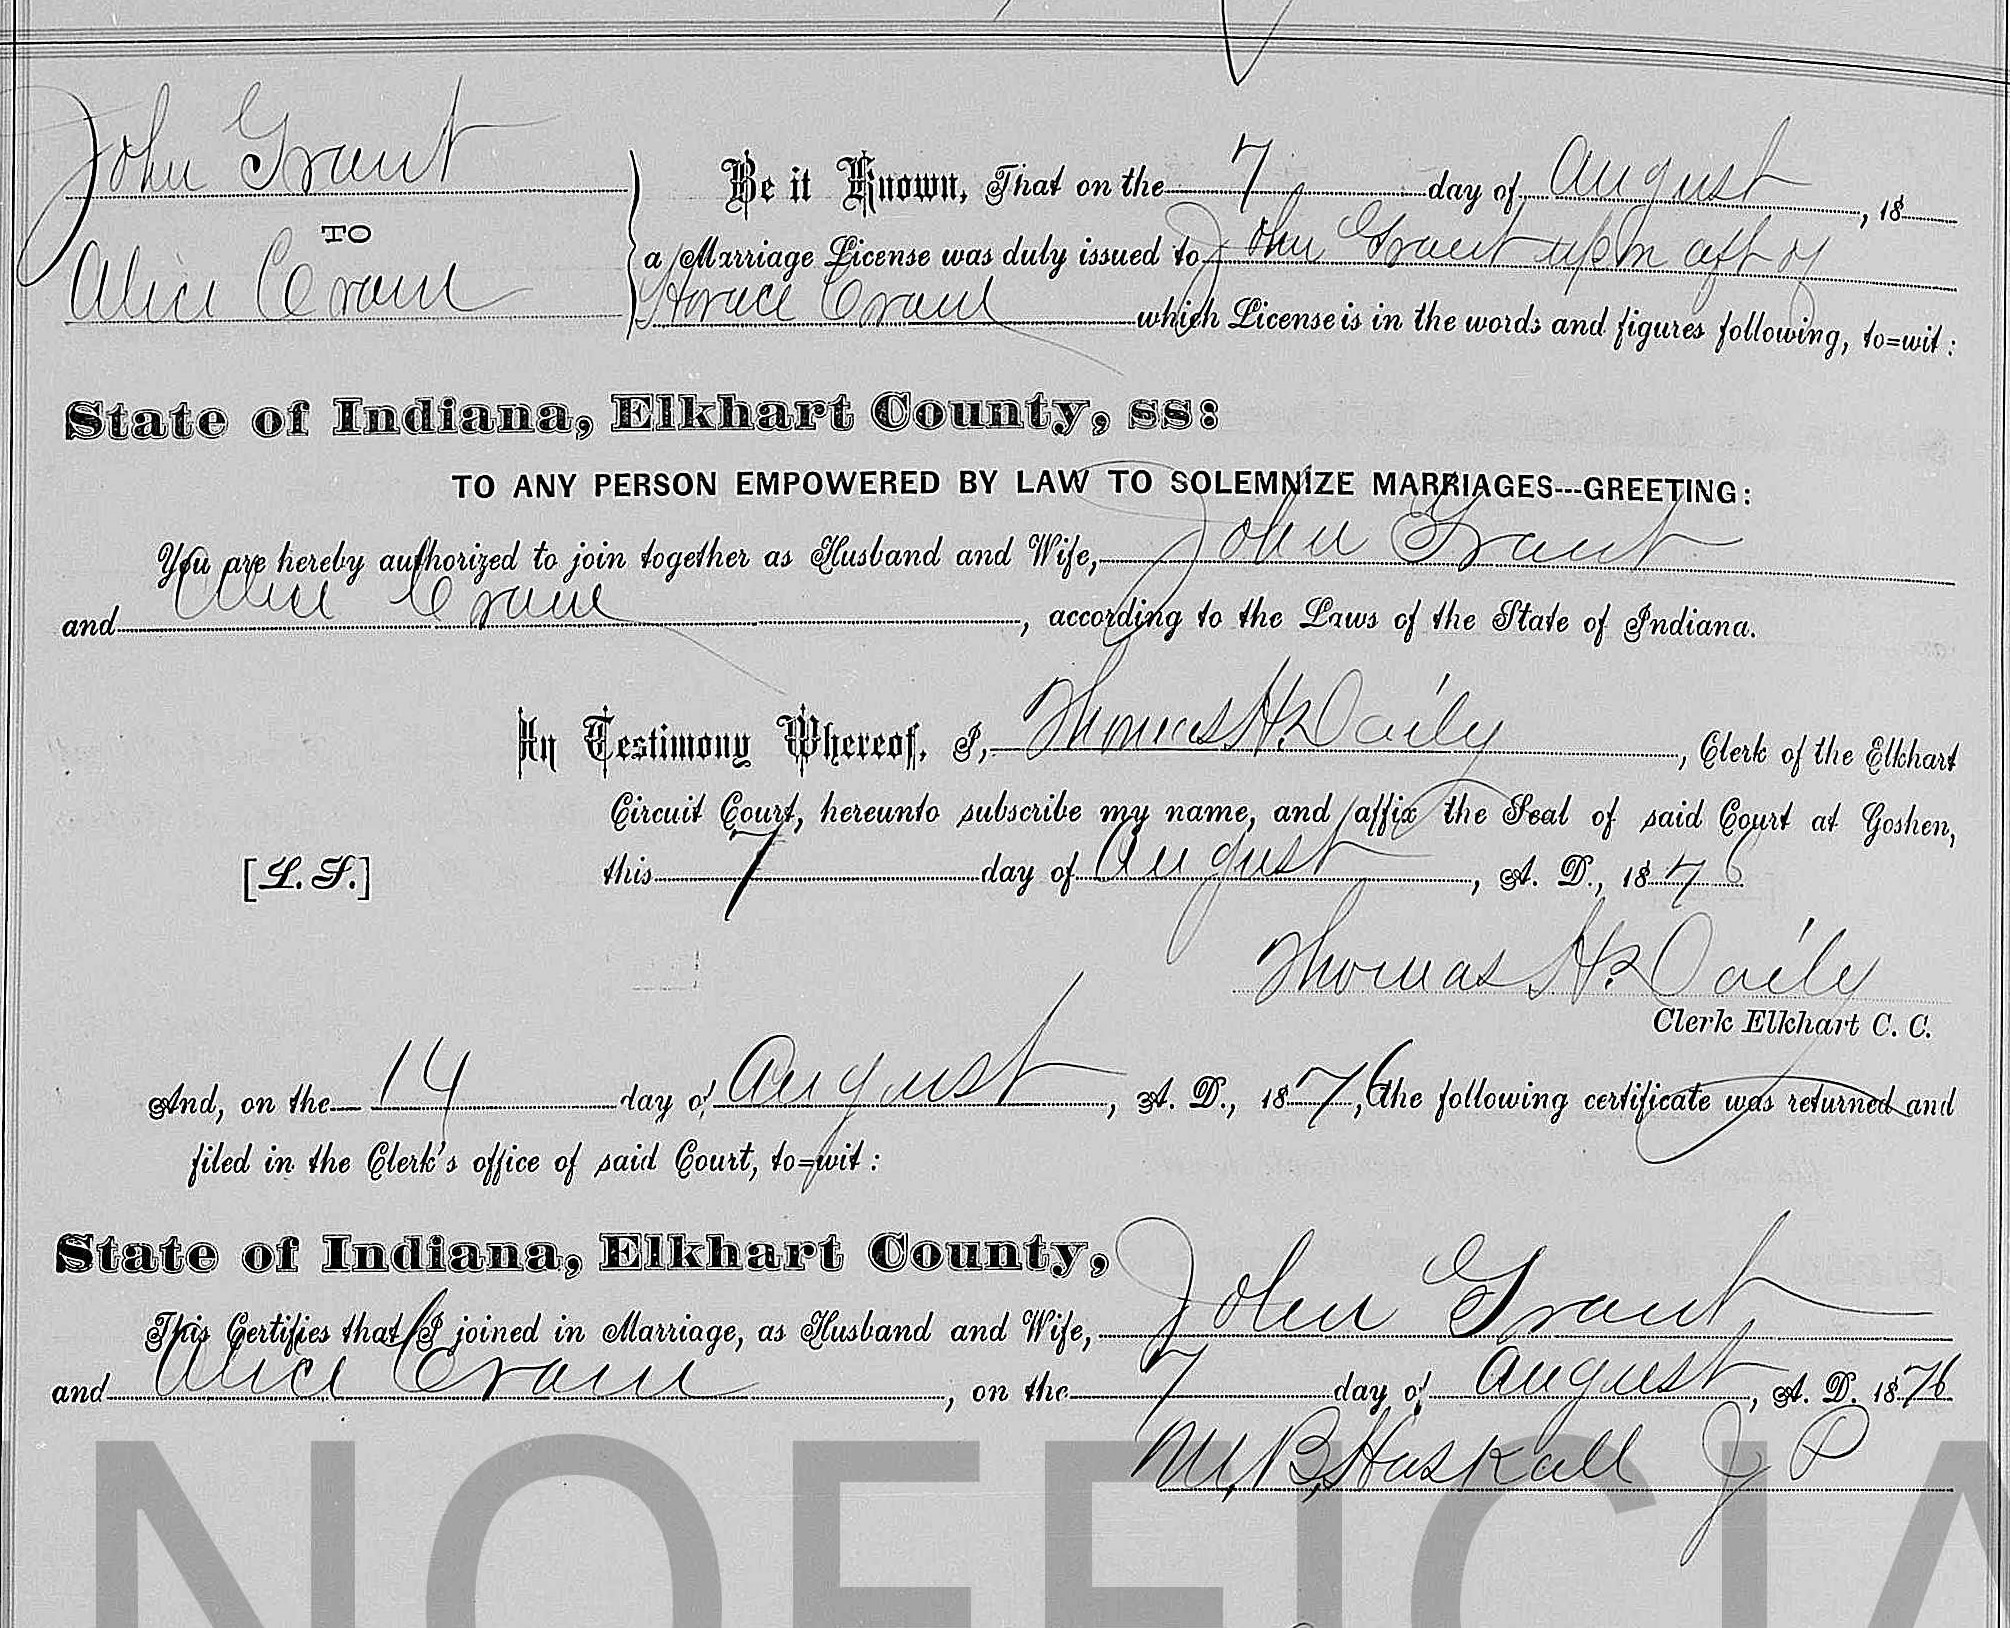 John Grant
TO
Alice Crane
Be it Known, That on the 7 day of August, 18
a Marriage License was duly issued to John Grant upon aft of
Horace Crane which License is in the words and figures following, to=wit:
State of Indiana, Elkhart County, ss:
TO ANY PERSON EMPOWERED BY LAW TO SOLEMNIZE MARRIAGES---GREETING:
You are hereby authorized to join together as Husband and Wife, John Grant
and Alice Crane, according to the Laws of the State of Indiana.
In Testimony Whereof, I, Thomas H. Daily, Clerk of the Elkhart
Circuit Court, hereunto subscribe my name, and affix the Seal of said Court at Goshen,
[L. S.] this 7 day of August, A. D., 1876
Thomas H. Daily
Clerk Elkhart C. C.
And, on the 14 day of August, A. D., 1876, the following certificate was returned and
filed in the Clerk's office of said Court, to=wit:
State of Indiana, Elkhart County,
This Certifies that I joined in Marriage, as Husband and Wife, John Grant
and Alice Crane, on the 7 day of August, A. D. 1876
M. B. Haskall J P
NOFFICIA